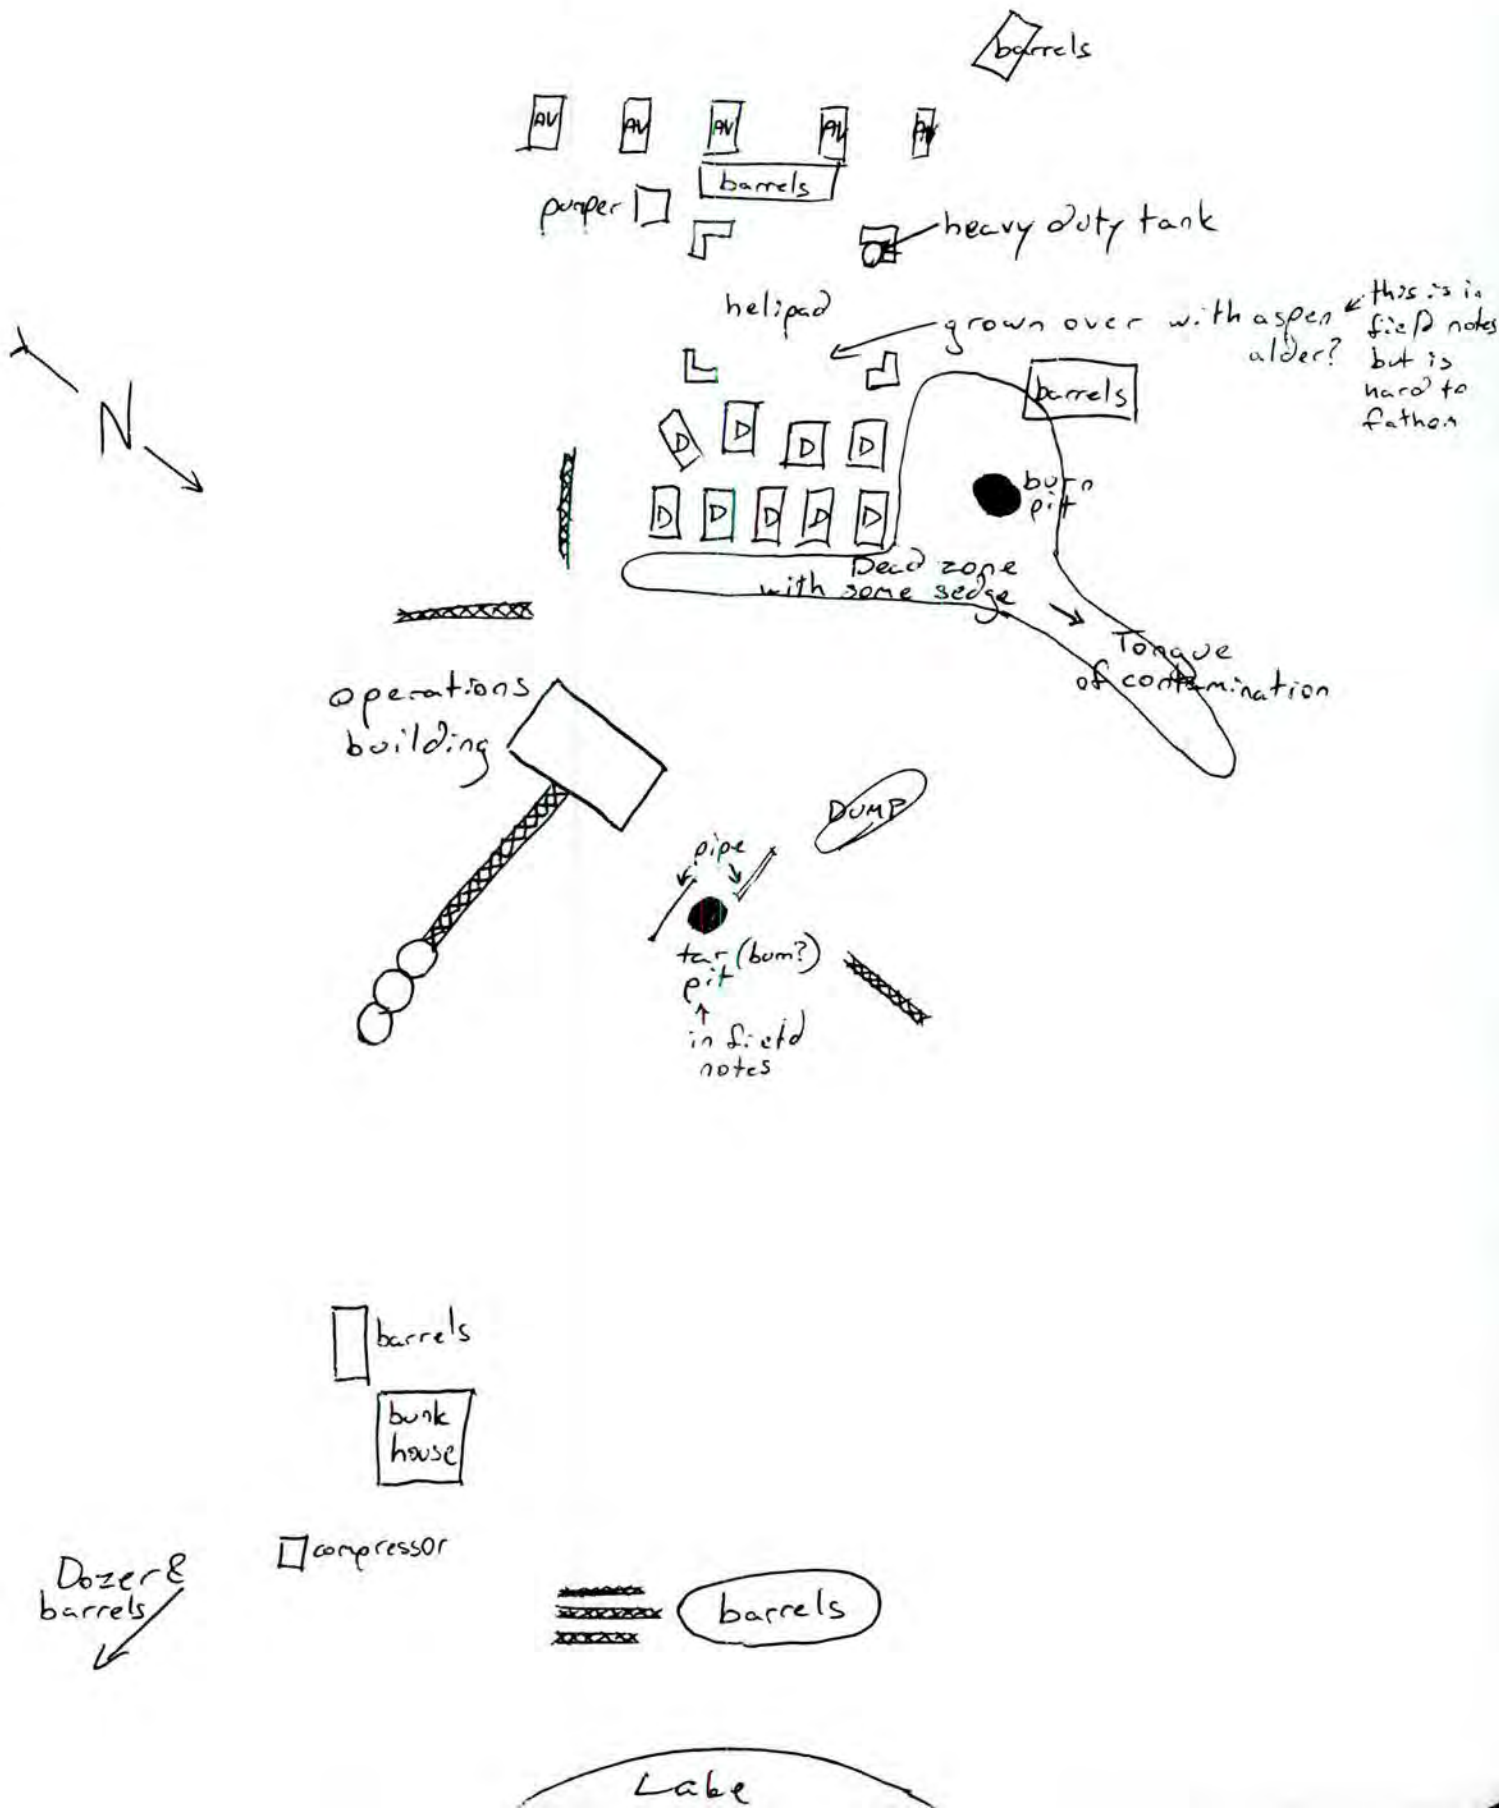 barrels
AV AV AV AV AV
barrels
pumper
heavy duty tank
helipad
grown over with aspen
alder?
this is in
field notes
but is
hard to
fathom
N
barrels
D D D D
D D D D D
burn
pit
Dead zone
with some sedge
Tongue
of contamination
operations
building
DUMP
pipe
tar (burn?)
pit
in field
notes
barrels
bunk
house
compressor
Dozer &
barrels
barrels
Lake